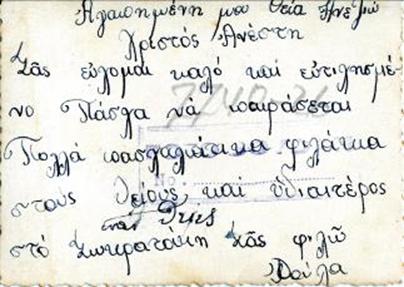 Αγαπημένη μου θεία Ανεζιώ
Χριστός Ανέστη
Σᾶς εὔχομαι καλό καί εὐτιχησμέ-
νο Πάσχα νὰ παιράσεται
Πολλά πασχαλιάτικα φιλάκια
στους θείους καί ὑδιαιτέρος
στό Σωκρατάκη Σᾶς φιλῶ
Ρούλα